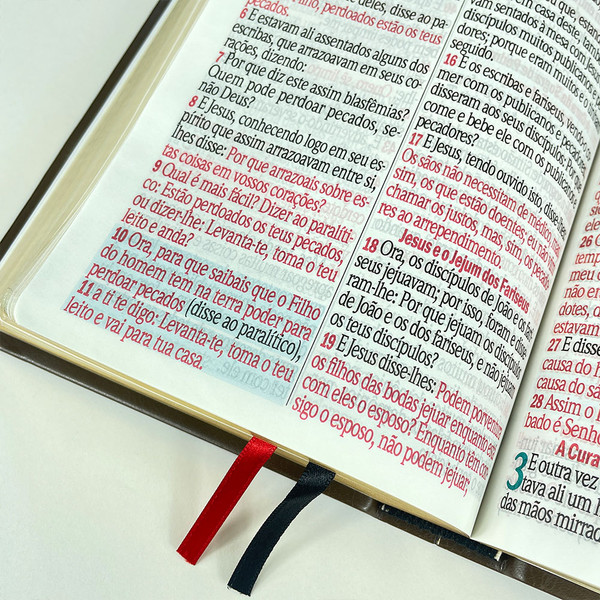 Filho, perdoados estão os teus
pecados.
6 E estavam ali assentados alguns dos
escribas, que arrazoavam em seus co-
rações, dizendo:
7 Por que diz este assim blasfêmias?
Quem pode perdoar pecados, se-
não Deus?
8 E Jesus, conhecendo logo em seu es-
pírito que assim arrazoavam entre si,
lhes disse: Por que arrazoais sobre es-
tas coisas em vossos corações?
9 Qual é mais fácil? Dizer ao paralíti-
co: Estão perdoados os teus pecados
ou dizer-lhe: Levanta-te, toma o teu
leito e anda?
10 Ora, para que saibais que o Filho
do homem tem na terra poder para
perdoar pecados (disse ao paralítico),
11 a ti te digo: Levanta-te, toma o teu
leito e vai para tua casa.
em casa deste, também
ram sentados à mesa com Jesus
discípulos muitos publicanos
dores; porque eram muitos e o
seguido.
16 E os escribas e fariseus, vendo
mer com os publicanos e pecado
disseram aos seus discípulos: Por
come e bebe ele com os publica
pecadores?
17 E Jesus, tendo ouvido isto, disse-lhes:
Os sãos não necessitam de médico, mas
sim, os que estão doentes; eu não
chamar os justos, mas, sim, os peca
res ao arrependimento.
Jesus e o Jejum dos Fariseus
18 Ora, os discípulos de João e os fari
seus jejuavam; por isso, foram e disse
ram-lhe: Por que jejuam os discípulos
de João e os dos fariseus, e não jejuam
os teus discípulos?
19 E Jesus disse-lhes: Podem porventura
os filhos das bodas jejuar enquanto
com eles o esposo? Enquanto têm con
sigo o esposo, não podem jejuar;
26
temp
meu
não er
dotes,
estavam
27 E disse
causa do h
causa do sá
28 Assim o
bado é Senho
A Cura
3 E outra vez
tava ali um
das mãos mirrad